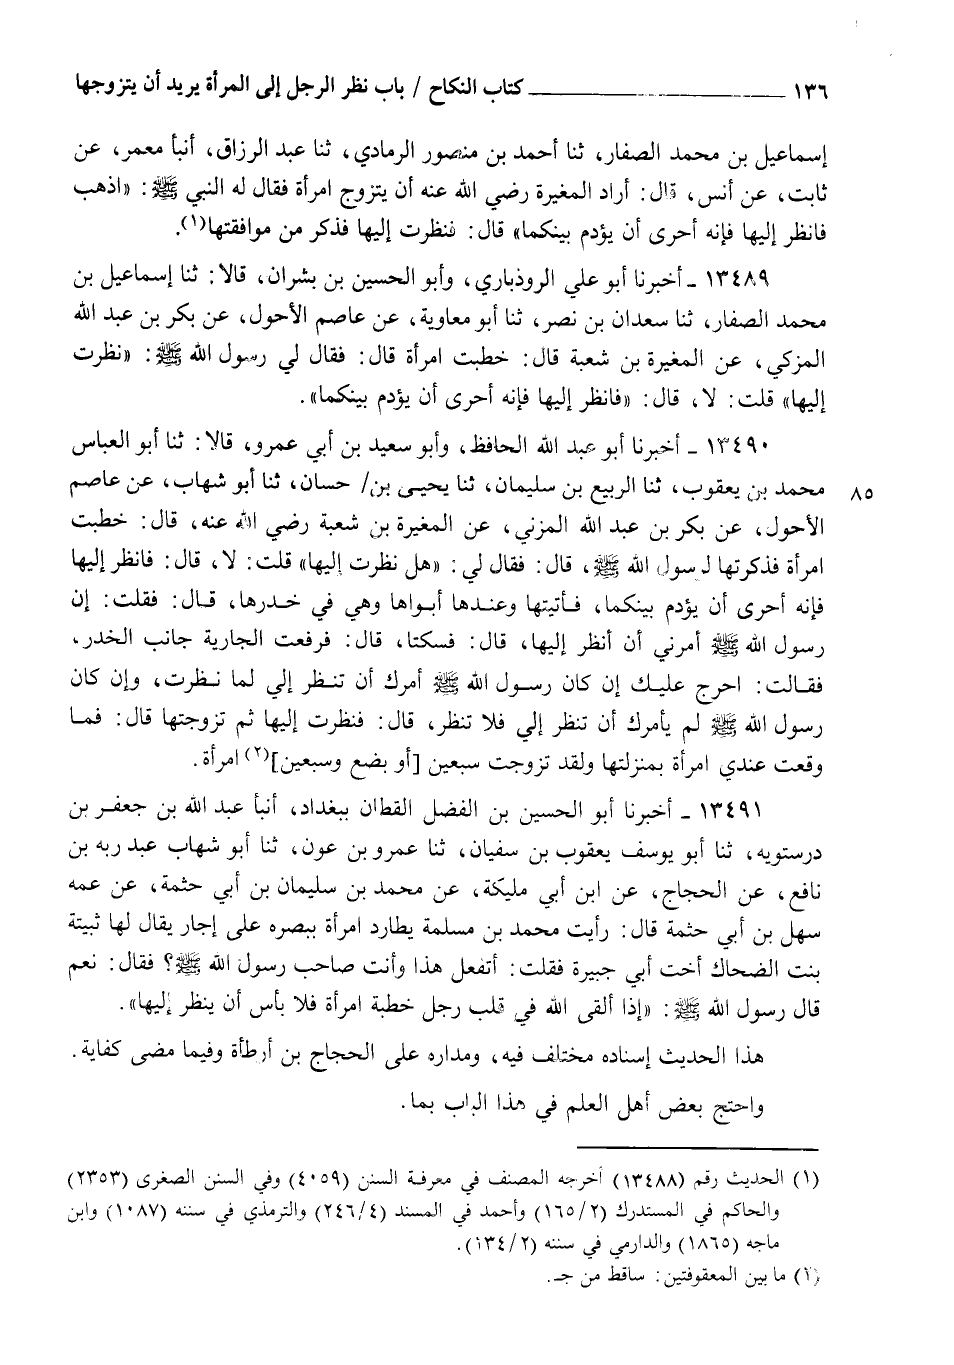 ١٣٦ ــــــــــــــــــــ كتاب النكاح / باب نظر الرجل إلى المرأة يريد أن يتزوجها
إسماعيل بن محمد الصفار، ثنا أحمد بن منصور الرمادي، ثنا عبد الرزاق، أنبأ معمر، عن
ثابت، عن أنس، قال: أراد المغيرة رضي الله عنه أن يتزوج امرأة فقال له النبي ﷺ: «اذهب
فانظر إليها فإنه أحرى أن يؤدم بينكما» قال: فنظرت إليها فذكر من موافقتها(١).
١٣٤٨٩ ـ أخبرنا أبو علي الروذباري، وأبو الحسين بن بشران، قالا: ثنا إسماعيل بن
محمد الصفار، ثنا سعدان بن نصر، ثنا أبو معاوية، عن عاصم الأحول، عن بكر بن عبد الله
المزكي، عن المغيرة بن شعبة قال: خطبت امرأة قال: فقال لي رسول الله ﷺ: «نظرت
إليها» قلت: لا، قال: «فانظر إليها فإنه أحرى أن يؤدم بينكما».
١٣٤٩٠ ـ أخبرنا أبو عبد الله الحافظ، وأبو سعيد بن أبي عمرو، قالا: ثنا أبو العباس
٨٥ محمد بن يعقوب، ثنا الربيع بن سليمان، ثنا يحيى بن/ حسان، ثنا أبو شهاب، عن عاصم
الأحول، عن بكر بن عبد الله المزني، عن المغيرة بن شعبة رضي الله عنه، قال: خطبت
امرأة فذكرتها لرسول الله ﷺ، قال: فقال لي: «هل نظرت إليها» قلت: لا، قال: فانظر إليها
فإنه أحرى أن يؤدم بينكما، فأتيتها وعندها أبواها وهي في خدرها، قال: فقلت: إن
رسول الله ﷺ أمرني أن أنظر إليها، قال: فسكتا، قال: فرفعت الجارية جانب الخدر،
فقالت: احرج عليك إن كان رسول الله ﷺ أمرك أن تنظر إلي لما نظرت، وإن كان
رسول الله ﷺ لم يأمرك أن تنظر إلي فلا تنظر، قال: فنظرت إليها ثم تزوجتها قال: فما
وقعت عندي امرأة بمنزلتها ولقد تزوجت سبعين [أو بضع وسبعين](٢) امرأة.
١٣٤٩١ ـ أخبرنا أبو الحسين بن الفضل القطان ببغداد، أنبأ عبد الله بن جعفر بن
درستويه، ثنا أبو يوسف يعقوب بن سفيان، ثنا عمرو بن عون، ثنا أبو شهاب عبد ربه بن
نافع، عن الحجاج، عن ابن أبي مليكة، عن محمد بن سليمان بن أبي حثمة، عن عمه
سهل بن أبي حثمة قال: رأيت محمد بن مسلمة يطارد امرأة ببصره على إجار يقال لها ثبيتة
بنت الضحاك أخت أبي جبيرة فقلت: أتفعل هذا وأنت صاحب رسول الله ﷺ؟ فقال: نعم
قال رسول الله ﷺ: «إذا ألقى الله في قلب رجل خطبة امرأة فلا بأس أن ينظر إليها».
هذا الحديث إسناده مختلف فيه، ومداره على الحجاج بن أرطأة وفيما مضى كفاية.
واحتج بعض أهل العلم في هذا الباب بما.
(١) الحديث رقم (١٣٤٨٨) أخرجه المصنف في معرفة السنن (٤٠٥٩) وفي السنن الصغرى (٢٣٥٣)
والحاكم في المستدرك (١٦٥/٢) وأحمد في المسند (٢٤٦/٤) والترمذي في سننه (١٠٨٧) وابن
ماجه (١٨٦٥) والدارمي في سننه (١٣٤/٢).
(٢) ما بين المعقوفتين: ساقط من جـ.